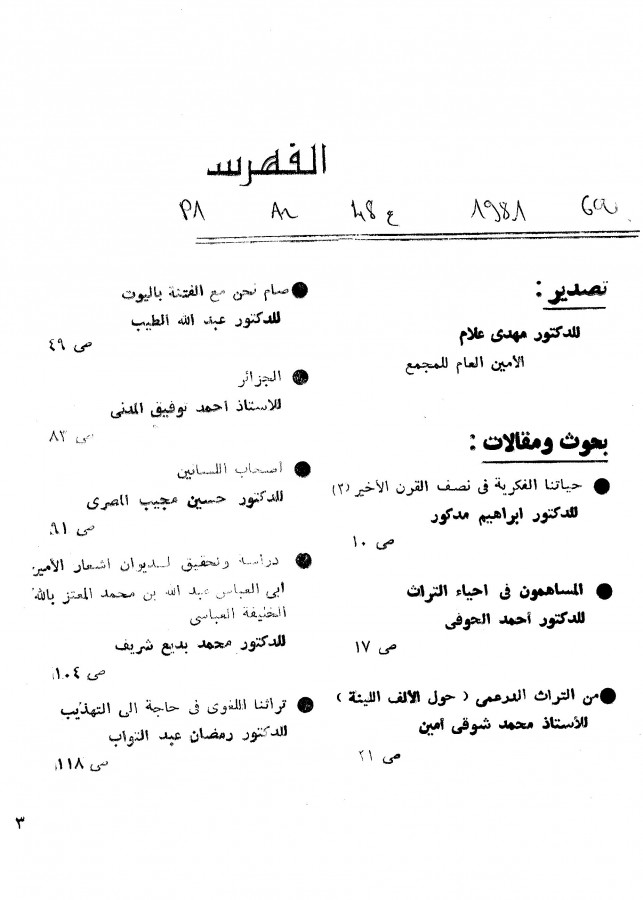 الفهرس
P1 An 48 ع 1981
تصدير :
للدكتور مهدى علام
الأمين العام للمجمع
بحوث ومقالات :
حياتنا الفكرية فى نصف القرن الأخير (٣)
للدكتور ابراهيم مدكور
ص ١٠
المساهمون فى احياء التراث
للدكتور أحمد الحوفى
ص ١٧
من التراث الدرعمى ( حول الألف اللينة )
للأستاذ محمد شوقى أمين
ص ٢١
صام نحن مع الفتنة باليوت
للدكتور عبد الله الطيب
ص ٤٩
الجزائر
للاستاذ احمد توفيق المدنى
ص ٨٣
أصحاب اللسانين
للدكتور حسين مجيب المصرى
ص ٩١
دراسة وتحقيق لديوان اشعار الأمير
ابى العباس عبد الله بن محمد المعتز بالله
الخليفة العباسى
للدكتور محمد بديع شريف
ص ١٠٤
تراثنا اللغوى فى حاجة الى التهذيب
للدكتور رمضان عبد التواب
ص ١١٨
٣